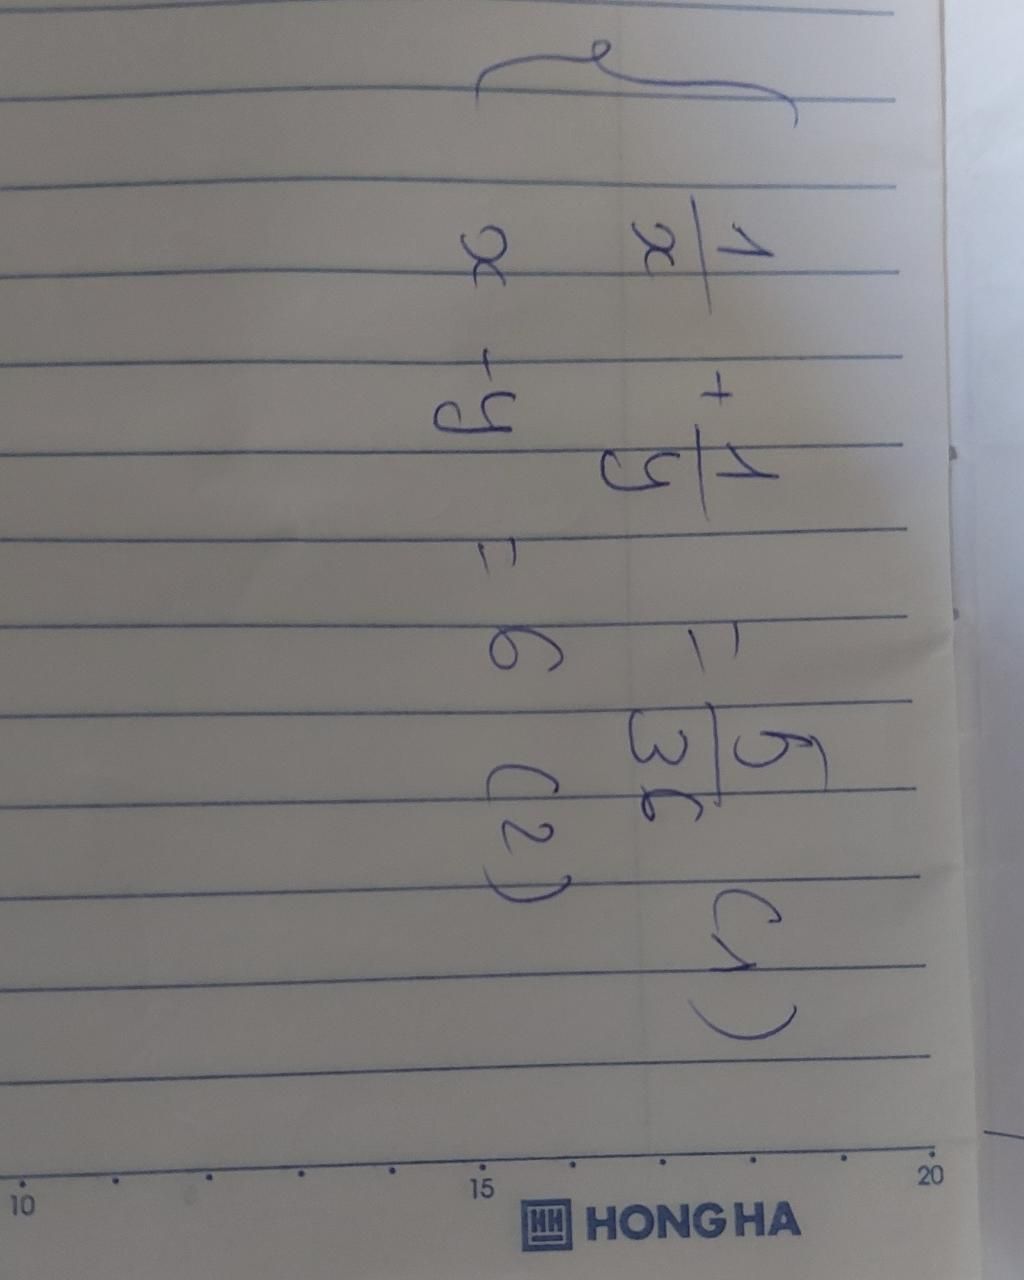 1/x + 1/y = 5/36 (1)
x - y = 6 (2)
10 15 20
HH HONG HA